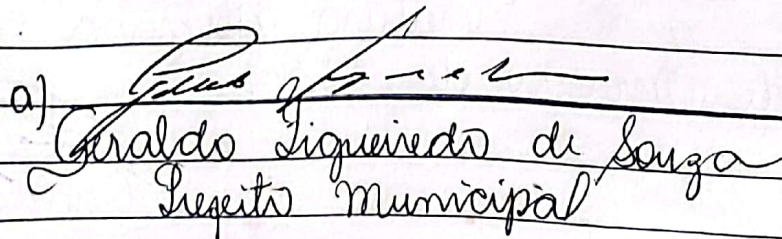 a)
Geraldo Figueiredo de Souza
Prefeito Municipal